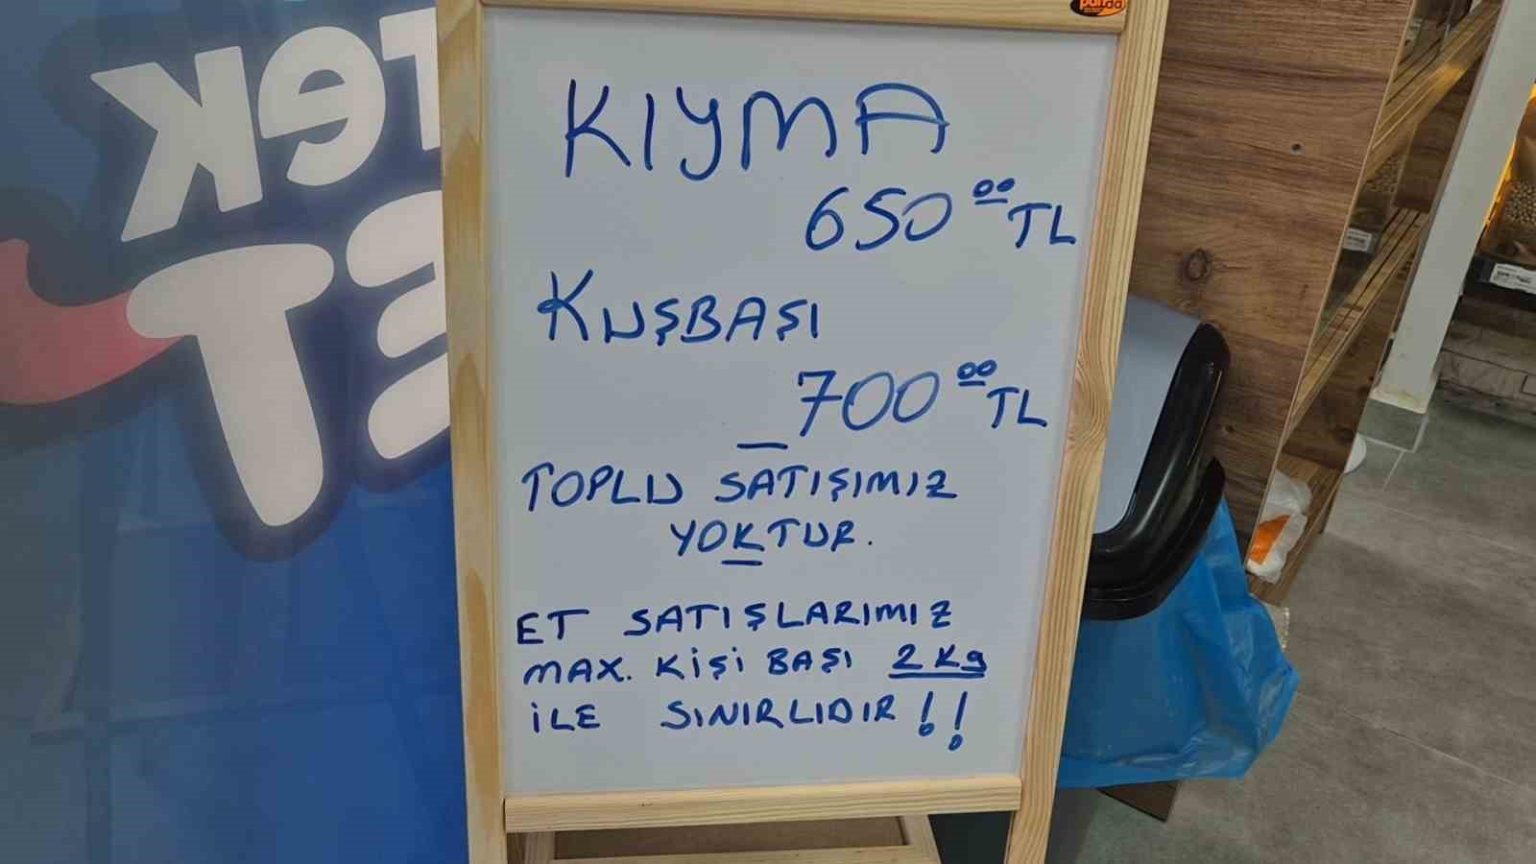 panda
KIYMA
650⁰⁰ TL
KUŞBAŞI
700⁰⁰ TL
TOPLU SATIŞIMIZ
YOKTUR.
ET SATIŞLARIMIZ
MAX. KİŞİ BAŞI 2 Kg
İLE SINIRLIDIR !!